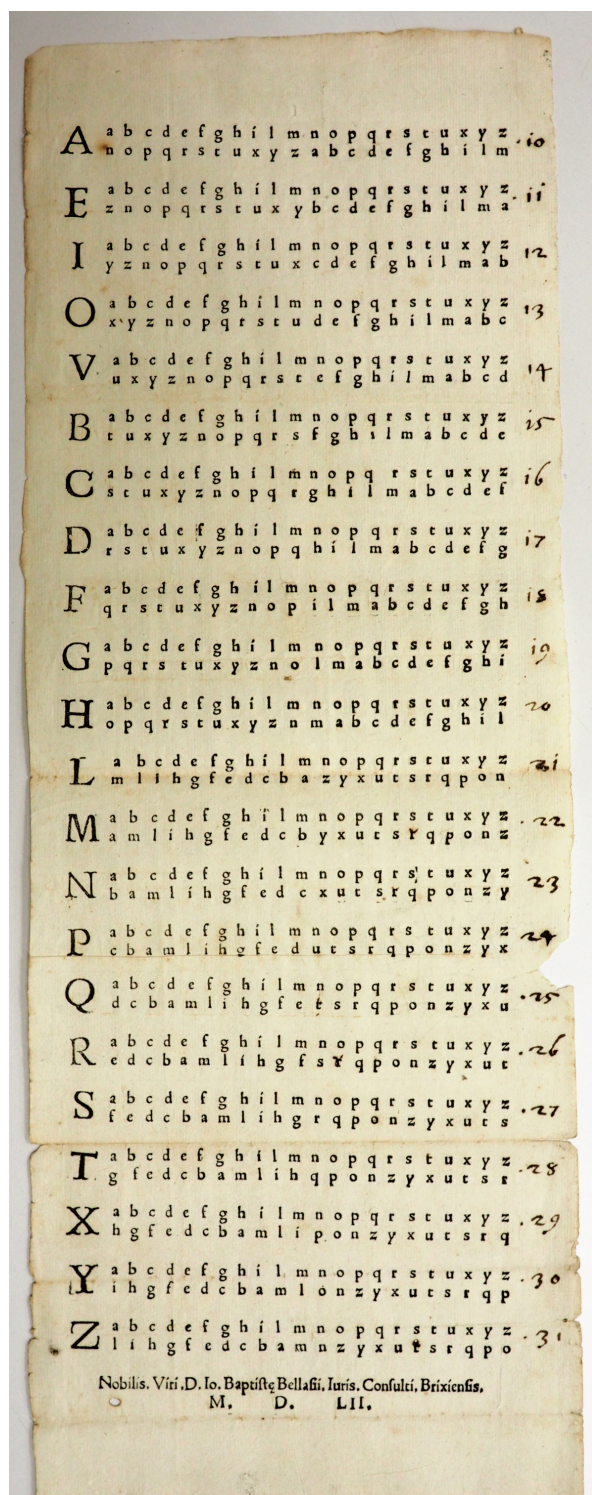 A a b c d e f g h i l m n o p q r s t u x y z .10
n o p q r s t u x y z a b c d e f g h i l m
E a b c d e f g h i l m n o p q r s t u x y z .11
z n o p q r s t u x y b c d e f g h i l m a
I a b c d e f g h i l m n o p q r s t u x y z 12
y z n o p q r s t u x c d e f g h i l m a b
O a b c d e f g h i l m n o p q r s t u x y z 13
x y z n o p q r s t u d e f g h i l m a b c
V a b c d e f g h i l m n o p q r s t u x y z 14
u x y z n o p q r s t e f g h i l m a b c d
B a b c d e f g h i l m n o p q r s t u x y z 15
t u x y z n o p q r s f g h i l m a b c d e
C a b c d e f g h i l m n o p q r s t u x y z 16
s t u x y z n o p q r g h i l m a b c d e f
D a b c d e f g h i l m n o p q r s t u x y z 17
r s t u x y z n o p q h i l m a b c d e f g
F a b c d e f g h i l m n o p q r s t u x y z 18
q r s t u x y z n o p i l m a b c d e f g h
G a b c d e f g h i l m n o p q r s t u x y z 19
p q r s t u x y z n o l m a b c d e f g h i
H a b c d e f g h i l m n o p q r s t u x y z 20
o p q r s t u x y z n m a b c d e f g h i l
L a b c d e f g h i l m n o p q r s t u x y z 21
m l i h g f e d c b a z y x u t s r q p o n
M a b c d e f g h i l m n o p q r s t u x y z .22
a m l i h g f e d c b y x u t s r q p o n z
N a b c d e f g h i l m n o p q r s t u x y z 23
b a m l i h g f e d c x u t s r q p o n z y
P a b c d e f g h i l m n o p q r s t u x y z 24
c b a m l i h g f e d u t s r q p o n z y x
Q a b c d e f g h i l m n o p q r s t u x y z .25
d c b a m l i h g f e t s r q p o n z y x u
R a b c d e f g h i l m n o p q r s t u x y z .26
e d c b a m l i h g f s r q p o n z y x u t
S a b c d e f g h i l m n o p q r s t u x y z .27
f e d c b a m l i h g r q p o n z y x u t s
T a b c d e f g h i l m n o p q r s t u x y z .28
g f e d c b a m l i h q p o n z y x u t s r
X a b c d e f g h i l m n o p q r s t u x y z .29
h g f e d c b a m l i p o n z y x u t s r q
Y a b c d e f g h i l m n o p q r s t u x y z .30
i h g f e d c b a m l o n z y x u t s r q p
Z a b c d e f g h i l m n o p q r s t u x y z .31
l i h g f e d c b a m n z y x u t s r q p o
Nobilis. Viri .D. Io. Baptistę Bellasii, Iuris. Consulti, Brixiensis.
M. D. LII.